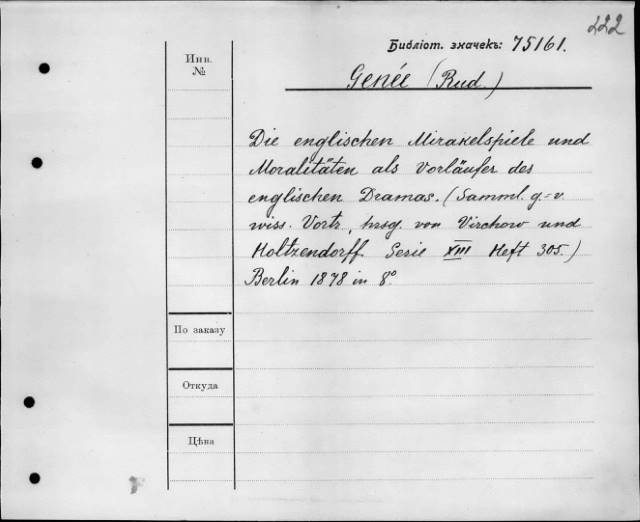 222
Библіот. значекъ: 75161.
Инв.
№
Genée (Rud.)
Die englischen Mirakelspiele und
Moralitäten als Vorläufer des
englischen Dramas. (Samml. g.-v.
wiss. Vortr., hrsg. von Virchow und
Holtzendorff. Serie XIII Heft 305.)
Berlin 1878 in 8°.
По заказу
Откуда
Цѣна